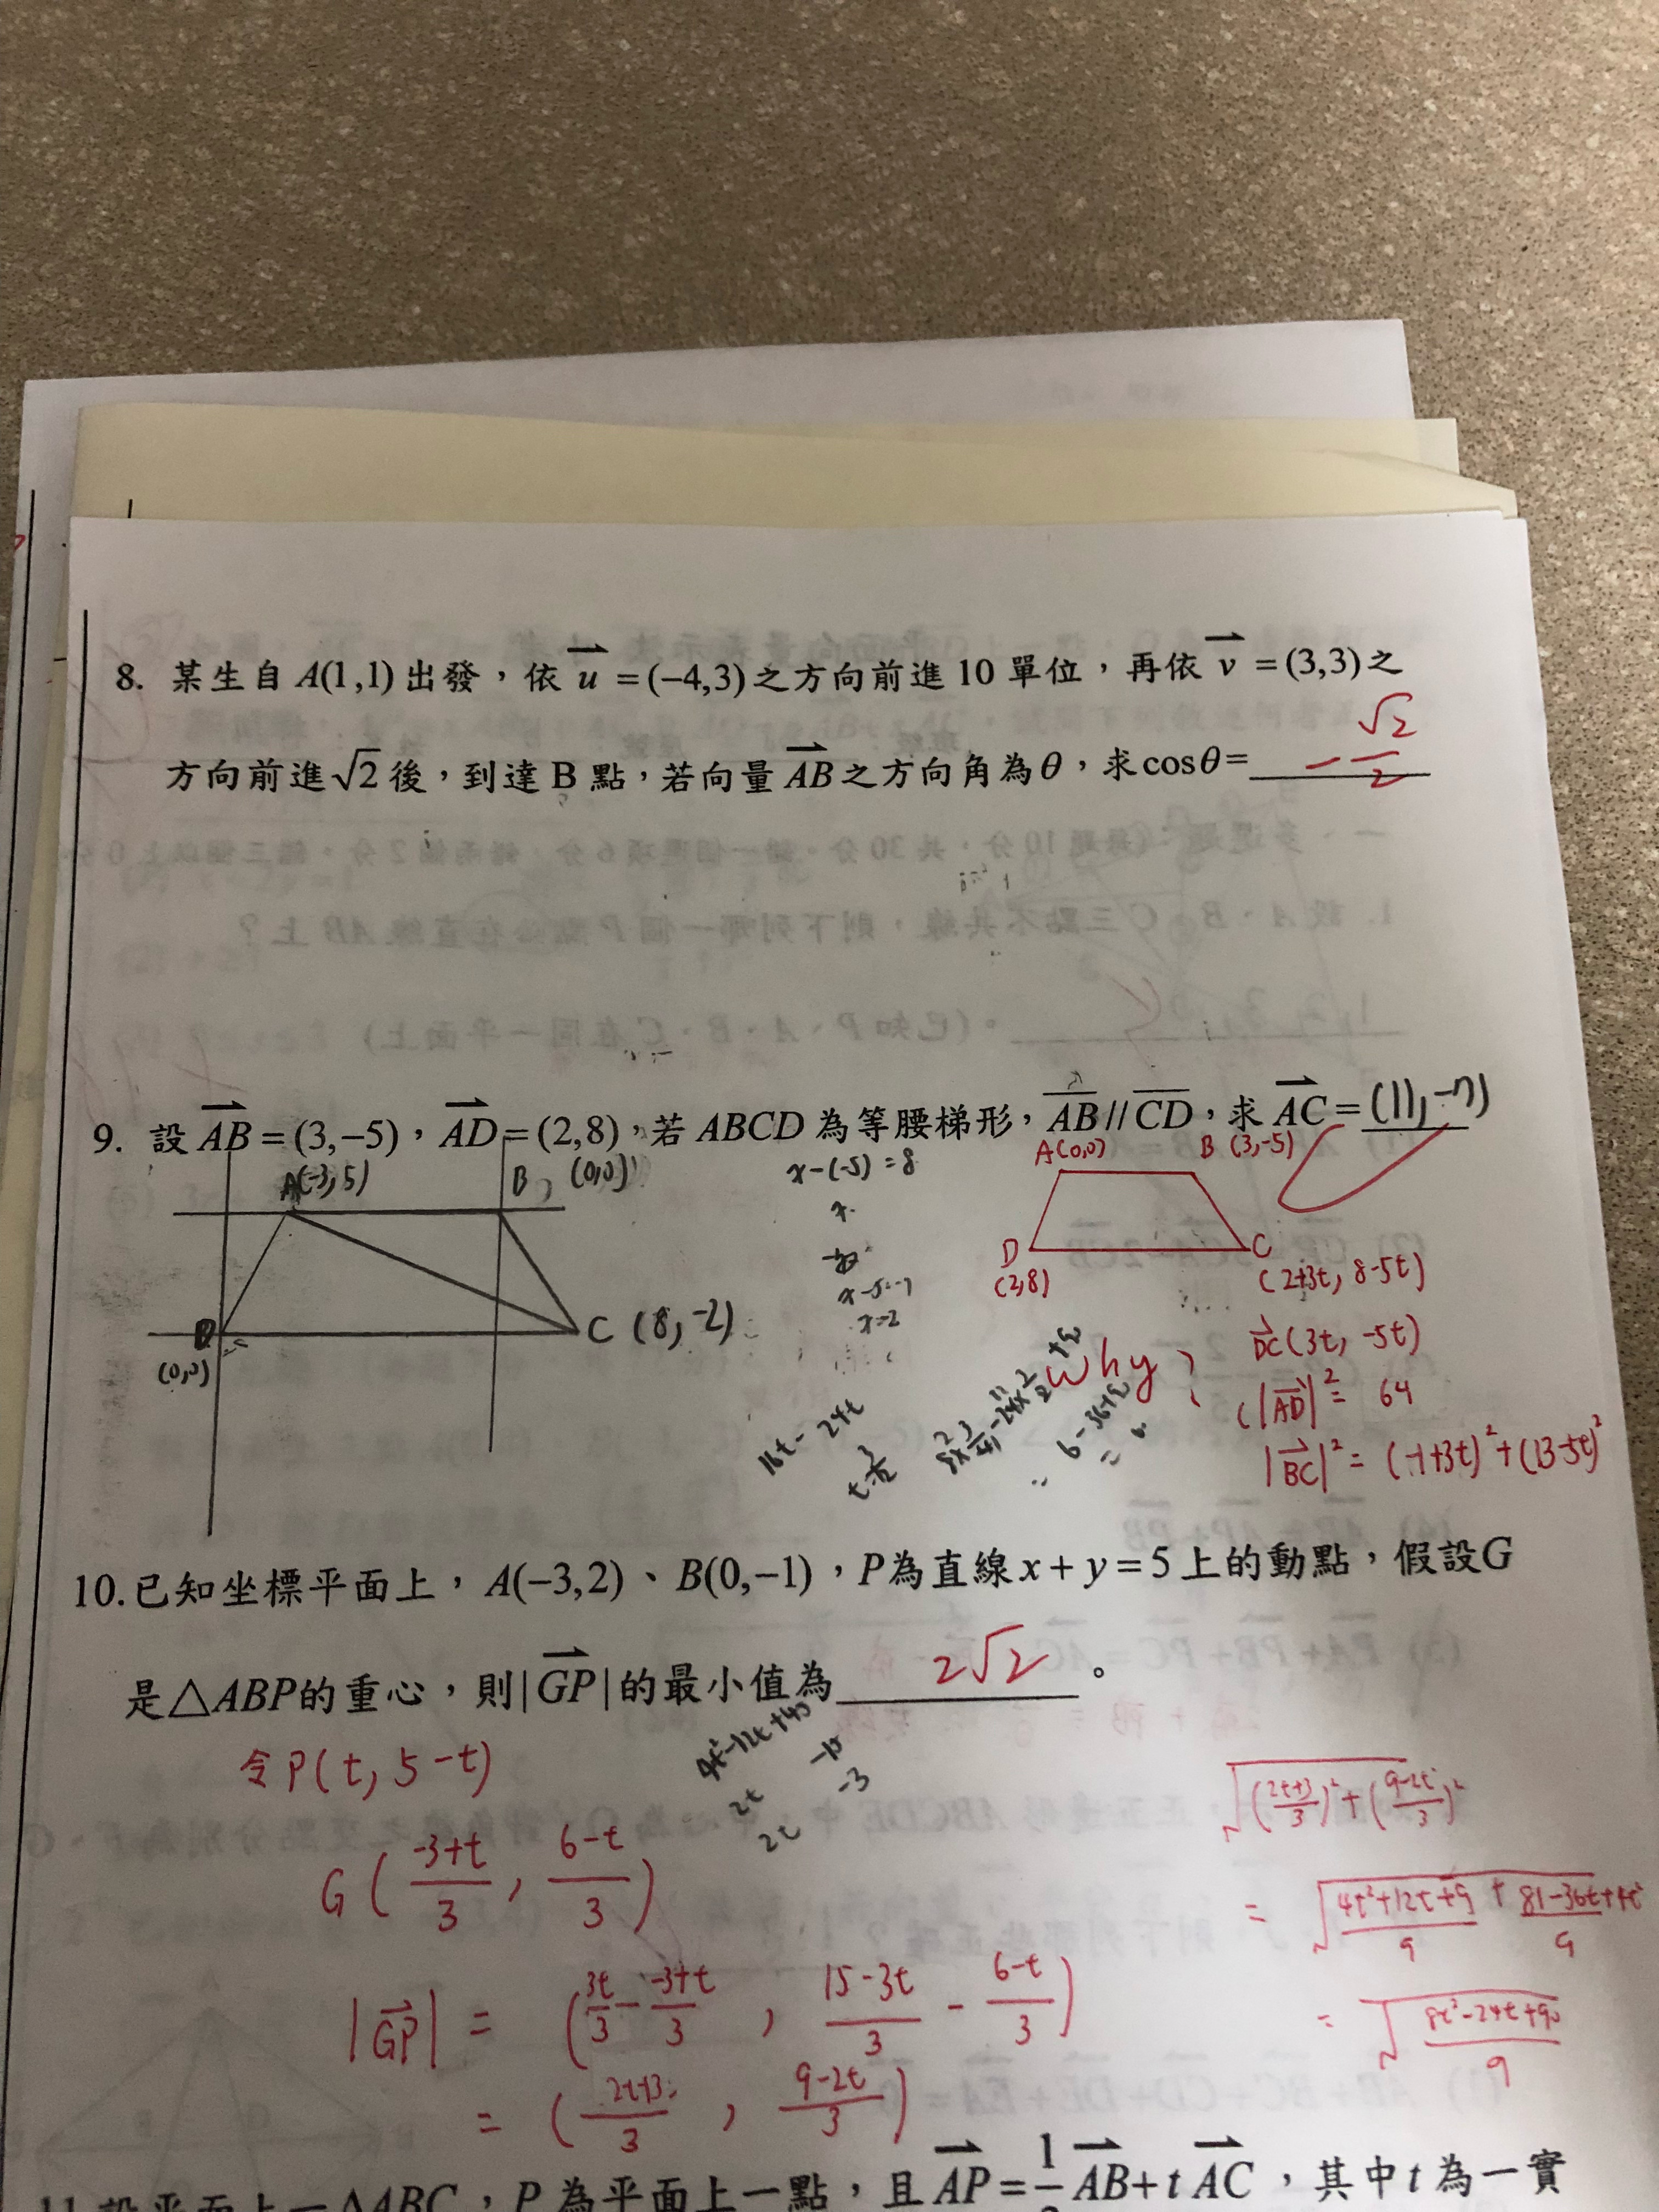 8. 某生自 A(1,1) 出發，依 u = (−4,3) 之方向前進 10 單位，再依 v = (3,3) 之
方向前進 √2 後，到達 B 點，若向量 AB 之方向角為 θ，求 cosθ = −√2/2
9. 設 AB = (3,−5)，AD = (2,8)，若 ABCD 為等腰梯形，AB // CD，求 AC = (11,-7)
A(-3,5)
B (0,0)
x-(-5)=8
A(0,0)
B (3,-5)
D
(0,0)
C (8,-2)
x-5=-7
x=-2
D
(2,8)
C
(2+3t, 8-5t)
why?
DC(3t, -5t)
|AD|² = 64
|BC|² = (-1+3t)²+(13-5t)²
16t-24t
10. 已知坐標平面上，A(−3,2)、B(0,−1)，P為直線 x + y = 5 上的動點，假設G
是△ABP的重心，則|GP|的最小值為 2√2 。
令P(t, 5-t)
4t²-12t+45
2t -15
2t -3
G((-3+t)/3, (6-t)/3)
|GP| = (3t/3 - (-3+t)/3, (15-3t)/3 - (6-t)/3)
= ((2t+3)/3, (9-2t)/3)
√(((2t+3)/3)²+((9-2t)/3)²)
= √((4t²+12t+9)/9 + (81-36t+4t²)/9)
= √((8t²-24t+90)/9)
11. 設平面上一△ABC，P 為平面上一點，且 AP = AB + t AC，其中 t 為一實